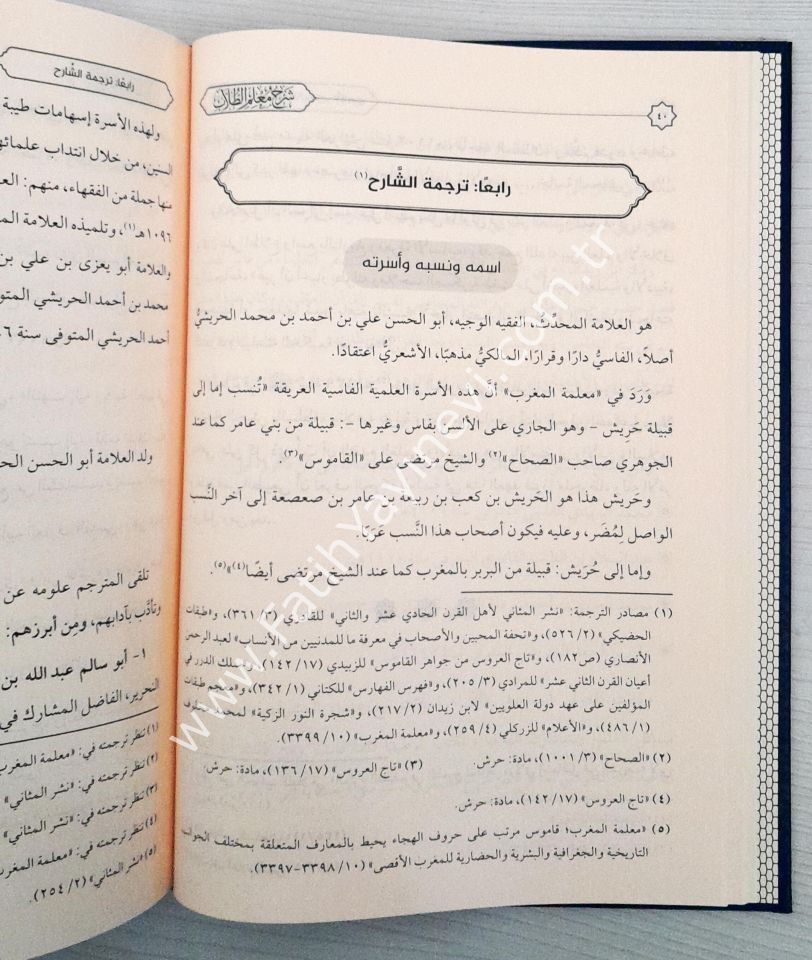 شرح معلم الطلاب
٤٠
رابعًا: ترجمة الشَّارح(١)
اسمه ونسبه وأسرته
هو العلامة المحدِّث، الفقيه الوجيه، أبو الحسن علي بن أحمد بن محمد الحريشيُّ
أصلًا، الفاسيُّ دارًا وقرارًا، المالكيُّ مذهبًا، الأشعريُّ اعتقادًا.
وَرَدَ في «معلمة المغرب» أنَّ هذه الأسرة العلمية الفاسية العريقة «تُنسب إما إلى
قبيلة حَرِيش - وهو الجاري على الألسن بفاس وغيرها -: قبيلة من بني عامر كما عند
الجوهري صاحب «الصحاح»(٢) والشيخ مرتضى على «القاموس»(٣).
وحَريش هذا هو الحَريش بن كعب بن ربيعة بن عامر بن صعصعة إلى آخر النَّسب
الواصل لِمُضَر، وعليه فيكون أصحاب هذا النَّسب عَرَبًا.
وإما إلى حُرَيش: قبيلة من البربر بالمغرب كما عند الشيخ مرتضى أيضًا(٤)»(٥).
(١) مصادر الترجمة: «نشر المثاني لأهل القرن الحادي عشر والثاني» للقادري (٣/ ٣٦١)، و«طبقات
الحضيكي» (٢/ ٥٢٦)، و«تحفة المحبين والأصحاب في معرفة ما للمدنيين من الأنساب» لعبد الرحمن
الأنصاري (ص١٨٢)، و«تاج العروس من جواهر القاموس» للزبيدي (١٧/ ١٤٢)، و«سلك الدرر في
أعيان القرن الثاني عشر» للمرادي (٣/ ٢٠٥)، و«فهرس الفهارس» للكتاني (١/ ٣٤٢)، و«معجم طبقات
المؤلفين على عهد دولة العلويين» لابن زيدان (٢/ ٢١٧)، و«شجرة النور الزكية» لمحمد مخلوف
(١/ ٤٨٦)، و«الأعلام» للزركلي (٤/ ٢٥٩)، و«معلمة المغرب» (١٠/ ٣٣٩٩).
(٢) «الصحاح» (٣/ ١٠٠١)، مادة: حرش.
(٣) «تاج العروس» (١٧/ ١٣٦)، مادة: حرش.
(٤) «تاج العروس» (١٧/ ١٤٢)، مادة: حرش.
(٥) «معلمة المغرب؛ قاموس مرتب على حروف الهجاء يحيط بالمعارف المتعلقة بمختلف الجوانب
التاريخية والجغرافية والبشرية والحضارية للمغرب الأقصى» (١٠/ ٣٣٩٨-٣٣٩٧).
رابعًا: ترجمة الشَّارح
ولهذه الأسرة إسهامات طيبة
السنين، من خلال انتداب
منها جملة من الفقهاء، منهم:
١٠٩٦هـ(١)، وتلميذه العلامة
والعلامة أبو يعزى بن علي بن
محمد بن أحمد الحريشي
أحمد الحريشي المتوفى سنة
ولد العلامة أبو الحسن
تلقى المترجم علومه عن
وتأدَّب بآدابهم، ومن أبرزهم:
١- أبو سالم عبد الله بن
النحرير، الفاضل المشارك في
(١) تنظر ترجمته في: «معلمة المغرب
(٢) تنظر ترجمته في: «نشر المثاني»
(٣) تنظر ترجمته في: «نشر المثاني»
(٤) تنظر ترجمته في: «معلمة المغرب
(٥) «نشر المثاني» (٢/ ٢٥٤).
www.FatihYayinevi.com.tr